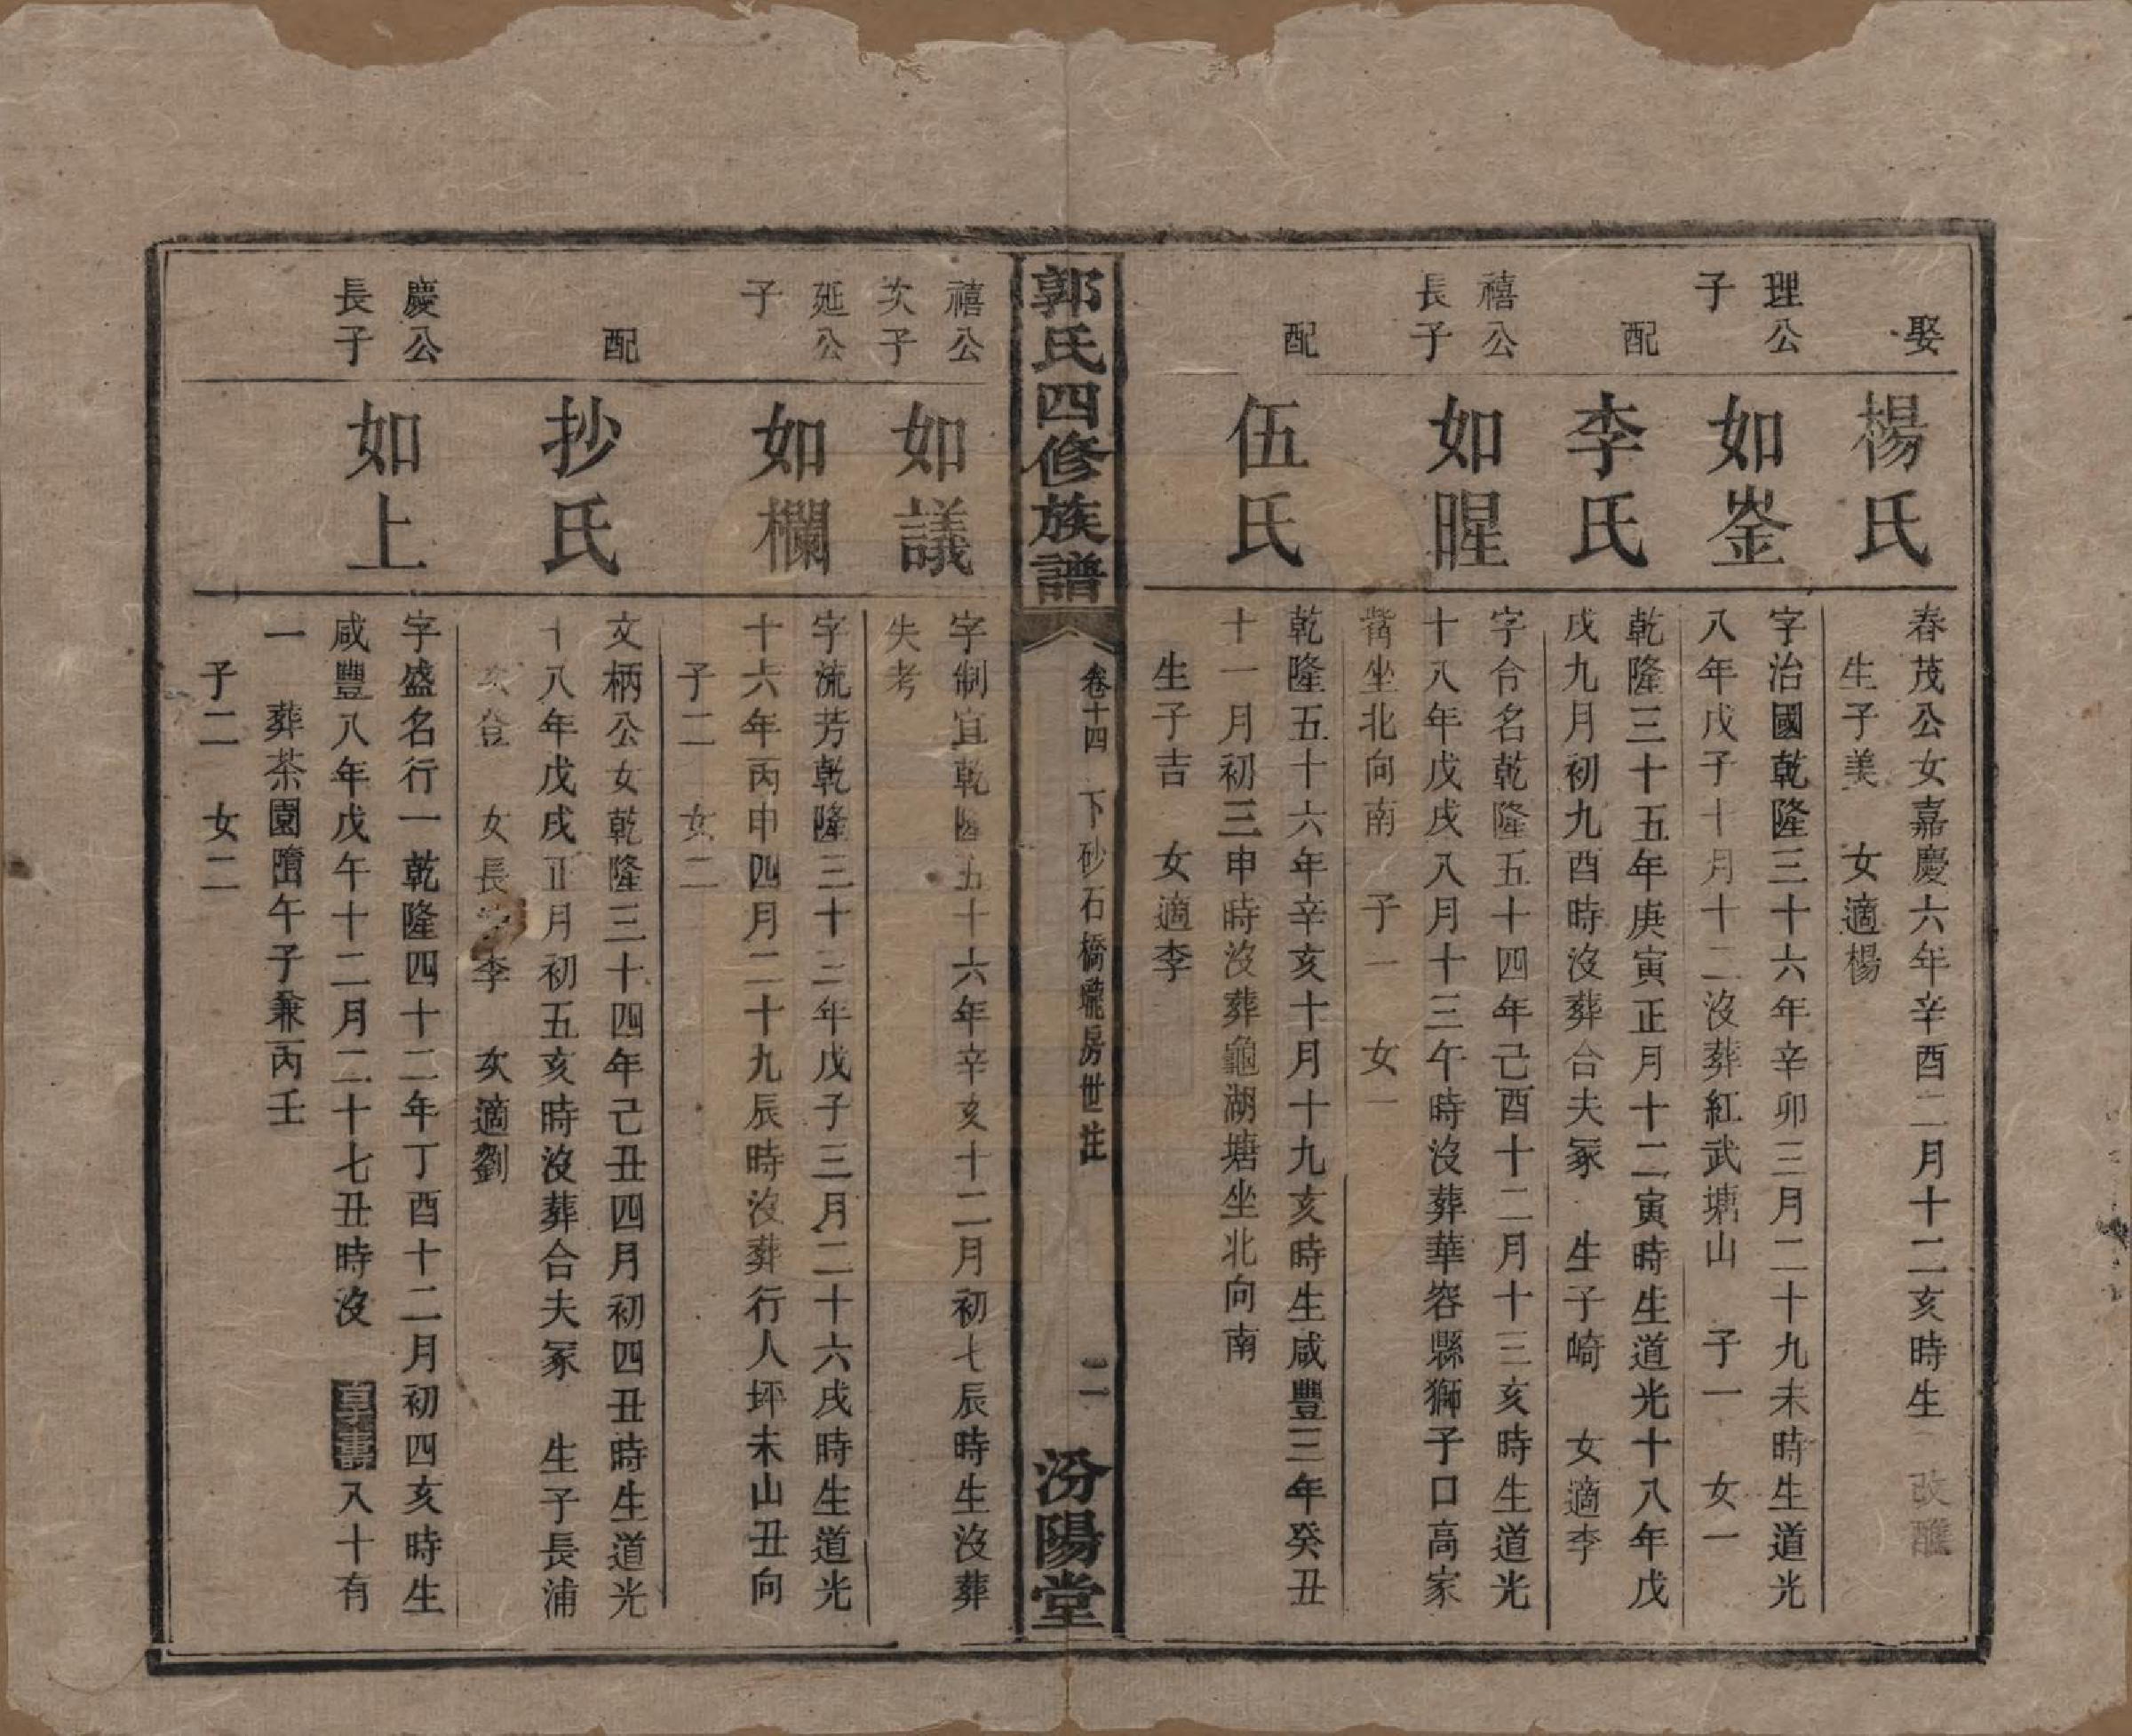 娶
楊氏
春茂公女嘉慶六年辛酉二月十二亥時生 改醮
生子美 女適楊
理公
子
如崟
字治國乾隆三十六年辛卯三月二十九未時生道光
八年戊子十月十二沒葬紅武塘山 子一 女一
配
李氏
乾隆三十五年庚寅正月十二寅時生道光十八年戊
戌九月初九酉時沒葬合夫冢 生子崎 女適李
禧公
長子
如暒
字令名乾隆五十四年己酉十二月十三亥時生道光
十八年戊戌八月十三午時沒葬華容縣獅子口高家
坐北向南 子一 女一
配
伍氏
乾隆五十六年辛亥十月十九亥時生咸豐三年癸丑
十一月初三申時沒葬龜湖塘坐北向南
生子吉 女適李
郭氏四修族譜
卷十四 下砂石橋瓏房世註
二
汾陽堂
禧公
次子
如議
字制宜乾隆五十六年辛亥十二月初七辰時生沒葬
失考
延公
子
如欄
字流芳乾隆三十三年戊子三月二十六戌時生道光
十六年丙申四月二十九辰時沒葬行人坪未山丑向
子二 女二
配
抄氏
文柄公女乾隆三十四年己丑四月初四丑時生道光
十八年戊戌正月初五亥時沒葬合夫冢 生子長浦
次登 女長適李 次適劉
慶公
長子
如上
字盛名行一乾隆四十二年丁酉十二月初四亥時生
咸豐八年戊午十二月二十七丑時沒 八十有
一 葬茶園隋午子兼丙壬
子二 女二